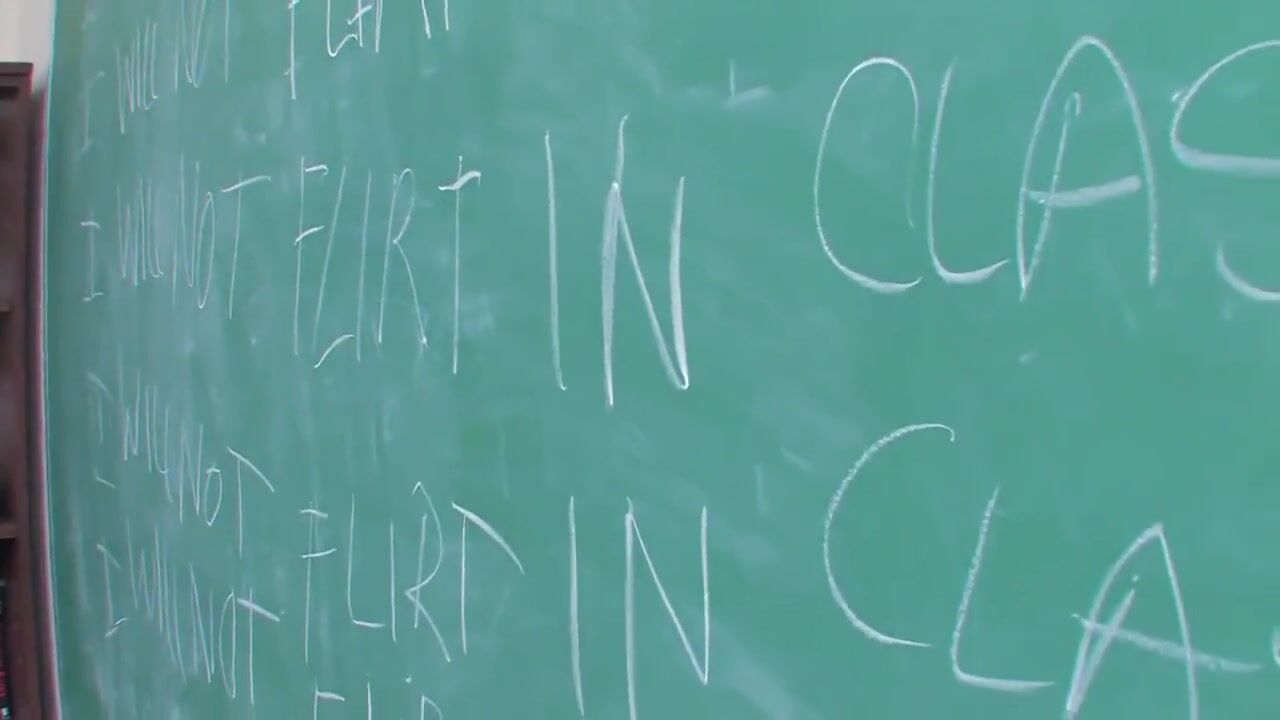 I WILL NOT FLIRT
I WILL NOT FLIRT IN CLAS
I WILL NOT FLIRT IN CLA
I WILL NOT FLIR